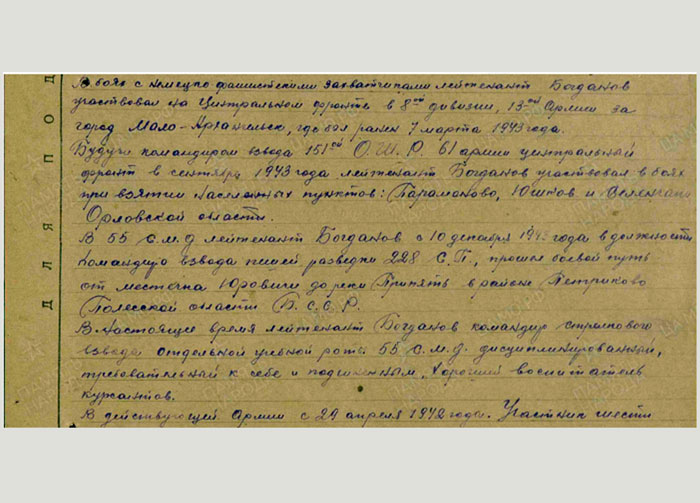 В боях с немецко-фашистскими захватчиками лейтенант Богданов
участвовал на Центральном фронте в 8ой дивизии, 13ой Армии за
город Мало-Архангельск, где был ранен 7 марта 1943 года.
Будучи командиром взвода 151ой О.Ш.Р. 61 армии центральный
фронт в сентябре 1943 года лейтенант Богданов участвовал в боях
при взятии населенных пунктов: Парамоново, Юшков. и
Орловской области.
В 55 С.М.Д лейтенант Богданов с 10 декабря 1943 года в должности
командира взвода пешей разведки 228 С.П., прошел боевой путь
от местечка Юровичи до реки Припять в районе Петриково
Полесской области Б.С.С.Р.
В настоящее время лейтенант Богданов командир стрелкового
взвода отдельной учебной роты 55 С.М.Д. дисциплинированный,
требовательный к себе и подчиненным. Хороший воспитатель
курсантов.
В действующей Армии с 29 апреля 1942 года. Участник шести
ДЛЯ ПОД